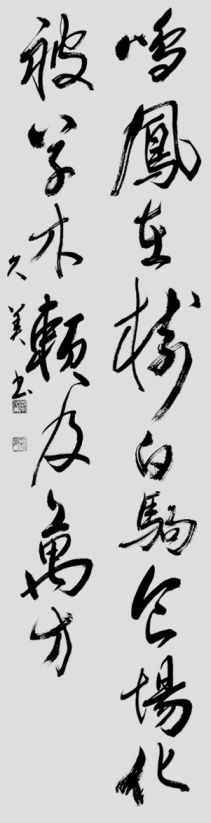 鳴鳳在樹白駒食場化
被草木賴及萬方
久美书